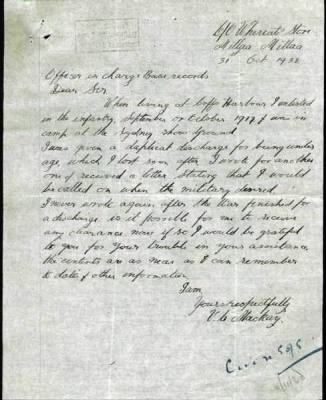 C/O Whereat Store
Millaa Millaa
31 Oct 1932
Officer in Charge Base records
Dear Sir
When living at Coffs Harbour I enlisted
in the infantry, September or October 1917 & was in
camp at the Sydney show Ground
I was given a duplicat discharge for being under
age, which I lost soon after I wrote for another
one & received a letter stating that I would
be called on when the military desired
I never wrote again, after the War finished for
a discharge, is it possible for me to receive
any clearance now, if so I would be grateful
to you for your trouble in your assistance
the contents are as near as I can remember
to date & other information
I am
Yours respectfully
V. C. Mackay